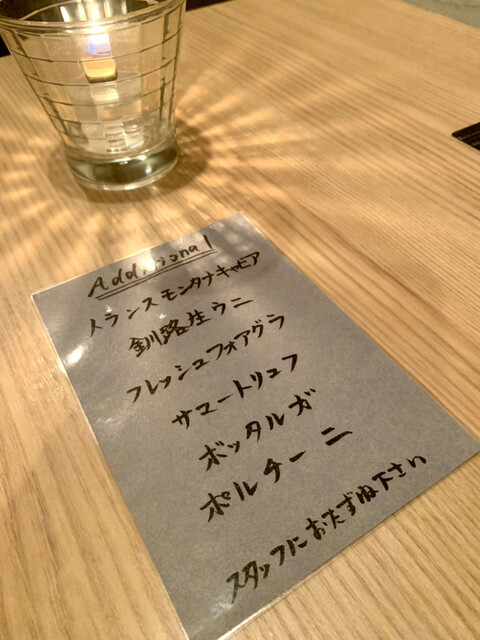 Additional
トランスモンタナキャビア
釧路生ウニ
フレッシュフォアグラ
サマートリュフ
ボッタルガ
ポルチーニ
スタッフにおたずね下さい